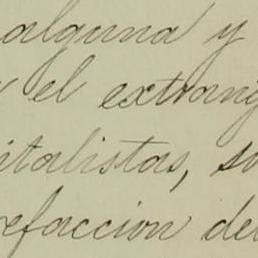 alguna y
el extranj
italistas, so
efaccion del